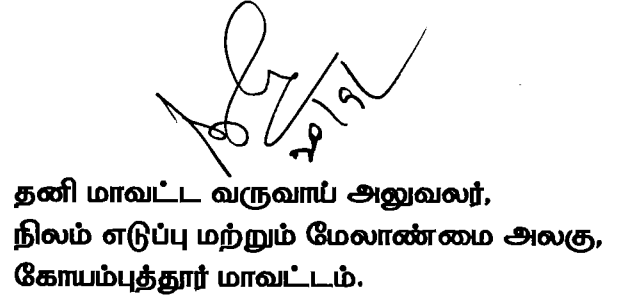 20/9
தனி மாவட்ட வருவாய் அலுவலர்,
நிலம் எடுப்பு மற்றும் மேலாண்மை அலகு,
கோயம்புத்தூர் மாவட்டம்.